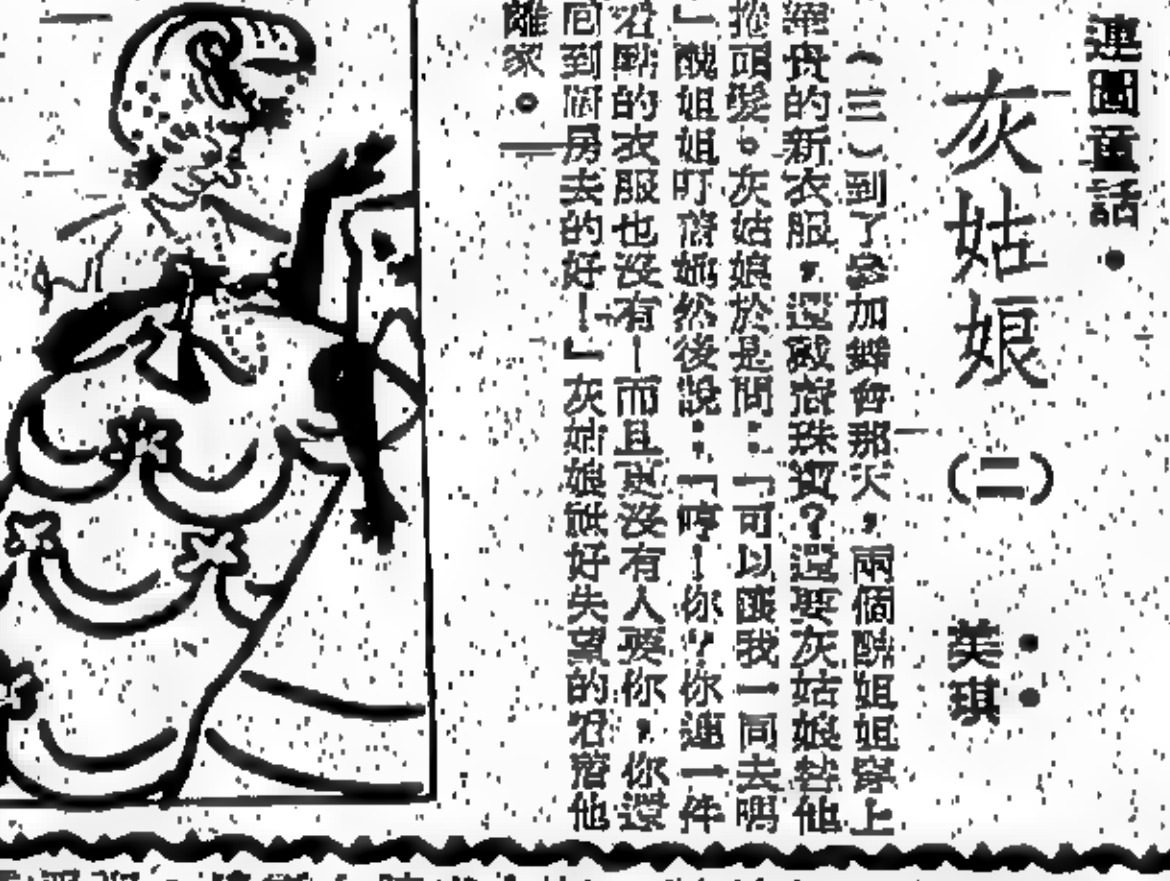 連圖童話•
灰姑娘
(二)
美琪
(三)到了參加舞會那天,兩個醜姐姐穿上
華貴的新衣服,還戴着珠寶?還要灰姑娘替他
捲頭髮。灰姑娘於是問:「可以讓我一同去嗎
」醜姐姐叮着她然後說:「哼!你?你連一件
着的衣服也沒有!而且更沒有人要你,你還
回到廚房去的好!』灰姑娘祇好失望的着他
離家。